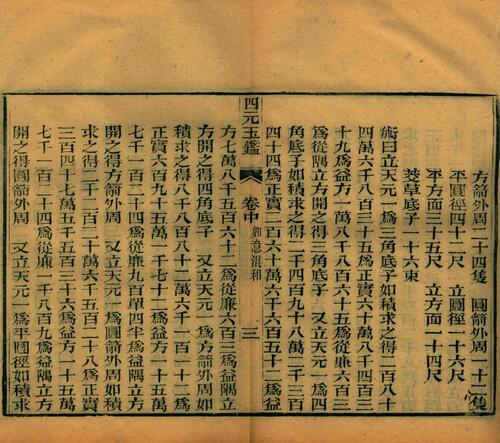 方箭外周二十四隻 圓箭外周一十二隻
平圓徑四十二尺 立圓徑一十六尺
平方面三十五尺 立方面一十四尺
茭草底子一十六束
術曰立天元一爲三角底子如積求之得二百八十
四萬六千八百三十五爲正實六十萬八千六百三
十九爲益方一萬八千八百六十五爲從廉六百三
爲從隅立方開之得三角底子 又立天元一爲四
角底子如積求之得二千四百九十八萬二千三百
四十四爲正實二百五十六萬二百五十六爲益
四元玉鑑 卷中 如意混和 三
方七萬八千五百六十二爲從廉六百三爲益隅立
方開之得四角底子 又立天元一爲方箭外周如
積求之得八千八百一十二萬六千一百一十二爲
正實六百九十萬一千七百一十二爲益方一十五萬
七千一百二十四爲從廉九百單四半爲益隅立方
開之得方箭外周 又立天元一爲圓箭外周如積
求之得二千二百二十萬六千五百二十八爲正實
三百四十七萬五千五百三十六爲益方一十一萬
七千一百二十四爲從廉一千八百九爲益隅立方
開之得圓箭外周 又立天元一爲平圓徑如積